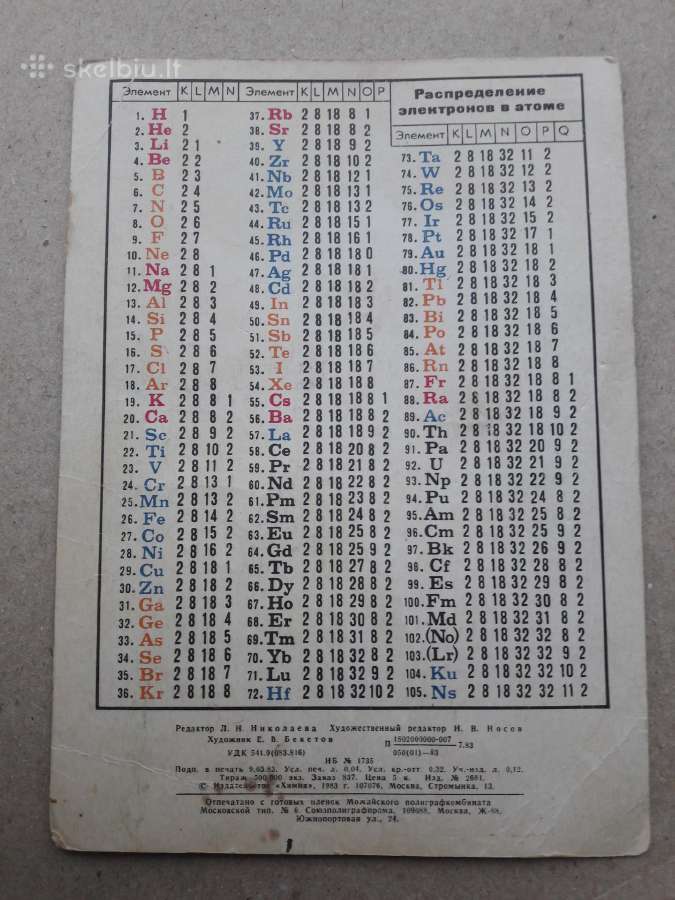 skelbiu.lt
Элемент K L M N
1. H 1
2. He 2
3. Li 2 1
4. Be 2 2
5. B 2 3
6. C 2 4
7. N 2 5
8. O 2 6
9. F 2 7
10. Ne 2 8
11. Na 2 8 1
12. Mg 2 8 2
13. Al 2 8 3
14. Si 2 8 4
15. P 2 8 5
16. S 2 8 6
17. Cl 2 8 7
18. Ar 2 8 8
19. K 2 8 8 1
20. Ca 2 8 8 2
21. Sc 2 8 9 2
22. Ti 2 8 10 2
23. V 2 8 11 2
24. Cr 2 8 13 1
25. Mn 2 8 13 2
26. Fe 2 8 14 2
27. Co 2 8 15 2
28. Ni 2 8 16 2
29. Cu 2 8 18 1
30. Zn 2 8 18 2
31. Ga 2 8 18 3
32. Ge 2 8 18 4
33. As 2 8 18 5
34. Se 2 8 18 6
35. Br 2 8 18 7
36. Kr 2 8 18 8
Элемент K L M N O P
37. Rb 2 8 18 8 1
38. Sr 2 8 18 8 2
39. Y 2 8 18 9 2
40. Zr 2 8 18 10 2
41. Nb 2 8 18 12 1
42. Mo 2 8 18 13 1
43. Tc 2 8 18 13 2
44. Ru 2 8 18 15 1
45. Rh 2 8 18 16 1
46. Pd 2 8 18 18 0
47. Ag 2 8 18 18 1
48. Cd 2 8 18 18 2
49. In 2 8 18 18 3
50. Sn 2 8 18 18 4
51. Sb 2 8 18 18 5
52. Te 2 8 18 18 6
53. I 2 8 18 18 7
54. Xe 2 8 18 18 8
55. Cs 2 8 18 18 8 1
56. Ba 2 8 18 18 8 2
57. La 2 8 18 18 9 2
58. Ce 2 8 18 20 8 2
59. Pr 2 8 18 21 8 2
60. Nd 2 8 18 22 8 2
61. Pm 2 8 18 23 8 2
62. Sm 2 8 18 24 8 2
63. Eu 2 8 18 25 8 2
64. Gd 2 8 18 25 9 2
65. Tb 2 8 18 27 8 2
66. Dy 2 8 18 28 8 2
67. Ho 2 8 18 29 8 2
68. Er 2 8 18 30 8 2
69. Tm 2 8 18 31 8 2
70. Yb 2 8 18 32 8 2
71. Lu 2 8 18 32 9 2
72. Hf 2 8 18 32 10 2
Распределение
электронов в атоме
Элемент K L M N O P Q
73. Ta 2 8 18 32 11 2
74. W 2 8 18 32 12 2
75. Re 2 8 18 32 13 2
76. Os 2 8 18 32 14 2
77. Ir 2 8 18 32 15 2
78. Pt 2 8 18 32 17 1
79. Au 2 8 18 32 18 1
80. Hg 2 8 18 32 18 2
81. Tl 2 8 18 32 18 3
82. Pb 2 8 18 32 18 4
83. Bi 2 8 18 32 18 5
84. Po 2 8 18 32 18 6
85. At 2 8 18 32 18 7
86. Rn 2 8 18 32 18 8
87. Fr 2 8 18 32 18 8 1
88. Ra 2 8 18 32 18 8 2
89. Ac 2 8 18 32 18 9 2
90. Th 2 8 18 32 18 10 2
91. Pa 2 8 18 32 20 9 2
92. U 2 8 18 32 21 9 2
93. Np 2 8 18 32 22 9 2
94. Pu 2 8 18 32 24 8 2
95. Am 2 8 18 32 25 8 2
96. Cm 2 8 18 32 25 9 2
97. Bk 2 8 18 32 26 9 2
98. Cf 2 8 18 32 28 8 2
99. Es 2 8 18 32 29 8 2
100. Fm 2 8 18 32 30 8 2
101. Md 2 8 18 32 31 8 2
102. (No) 2 8 18 32 32 8 2
103. (Lr) 2 8 18 32 32 9 2
104. Ku 2 8 18 32 32 10 2
105. Ns 2 8 18 32 32 11 2
Редактор Л. Н. Николаева Художественный редактор Н. В. Носов
Художник Е. В. Бекетов
П 1802000000-007
050(01)—83 7.83
УДК 541.9(083.816)
ИБ № 1735
Подп. в печать 9.03.83. Усл. печ. л. 0,04. Усл. кр.-отт. 0,32. Уч.-изд. л. 0,12.
Тираж 500 000 экз. Заказ 837. Цена 5 к. Изд. № 2681.
© Издательство «Химия», 1983 г. 107076, Москва, Стромынка, 13.
Отпечатано с готовых пленок Можайского полиграфкомбината
Московской тип. № 6 Союзполиграфпрома, 109088, Москва, Ж-88,
Южнопортовая ул., 24.